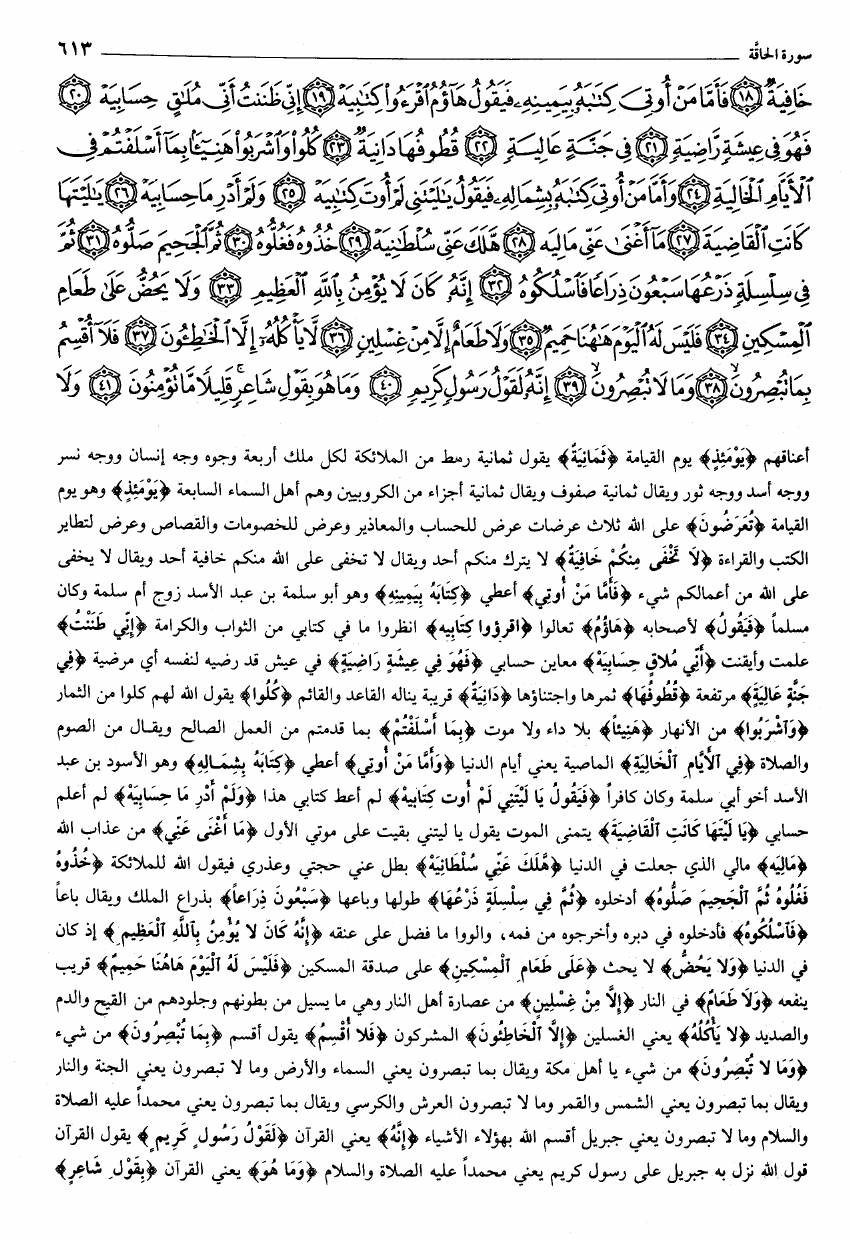 سورة الحاقَّة ٦١٣
خَافِيَةٌ ﴿١٨﴾ فَأَمَّا مَنْ أُوتِىَ كِتَٰبَهُۥ بِيَمِينِهِۦ فَيَقُولُ هَآؤُمُ ٱقْرَءُوا۟ كِتَٰبِيَهْ ﴿١٩﴾ إِنِّى ظَنَنتُ أَنِّى مُلَٰقٍ حِسَابِيَهْ ﴿٢٠﴾
فَهُوَ فِى عِيشَةٍ رَّاضِيَةٍ ﴿٢١﴾ فِى جَنَّةٍ عَالِيَةٍ ﴿٢٢﴾ قُطُوفُهَا دَانِيَةٌ ﴿٢٣﴾ كُلُوا۟ وَٱشْرَبُوا۟ هَنِيٓـًٔۢا بِمَآ أَسْلَفْتُمْ فِى
ٱلْأَيَّامِ ٱلْخَالِيَةِ ﴿٢٤﴾ وَأَمَّا مَنْ أُوتِىَ كِتَٰبَهُۥ بِشِمَالِهِۦ فَيَقُولُ يَٰلَيْتَنِى لَمْ أُوتَ كِتَٰبِيَهْ ﴿٢٥﴾ وَلَمْ أَدْرِ مَا حِسَابِيَهْ ﴿٢٦﴾ يَٰلَيْتَهَا
كَانَتِ ٱلْقَاضِيَةَ ﴿٢٧﴾ مَآ أَغْنَىٰ عَنِّى مَالِيَهْ ﴿٢٨﴾ هَلَكَ عَنِّى سُلْطَٰنِيَهْ ﴿٢٩﴾ خُذُوهُ فَغُلُّوهُ ﴿٣٠﴾ ثُمَّ ٱلْجَحِيمَ صَلُّوهُ ﴿٣١﴾ ثُمَّ
فِى سِلْسِلَةٍ ذَرْعُهَا سَبْعُونَ ذِرَاعًا فَٱسْلُكُوهُ ﴿٣٢﴾ إِنَّهُۥ كَانَ لَا يُؤْمِنُ بِٱللَّهِ ٱلْعَظِيمِ ﴿٣٣﴾ وَلَا يَحُضُّ عَلَىٰ طَعَامِ
ٱلْمِسْكِينِ ﴿٣٤﴾ فَلَيْسَ لَهُ ٱلْيَوْمَ هَٰهُنَا حَمِيمٌ ﴿٣٥﴾ وَلَا طَعَامٌ إِلَّا مِنْ غِسْلِينٍ ﴿٣٦﴾ لَّا يَأْكُلُهُۥٓ إِلَّا ٱلْخَٰطِـُٔونَ ﴿٣٧﴾ فَلَآ أُقْسِمُ
بِمَا تُبْصِرُونَ ﴿٣٨﴾ وَمَا لَا تُبْصِرُونَ ﴿٣٩﴾ إِنَّهُۥ لَقَوْلُ رَسُولٍ كَرِيمٍ ﴿٤٠﴾ وَمَا هُوَ بِقَوْلِ شَاعِرٍ ۚ قَلِيلًا مَّا تُؤْمِنُونَ ﴿٤١﴾ وَلَا
أعناقهم ﴿يَوْمَئِذٍ﴾ يوم القيامة ﴿ثَمَانِيَةٌ﴾ يقول ثمانية رهط من الملائكة لكل ملك أربعة وجوه وجه إنسان ووجه نسر
ووجه أسد ووجه ثور ويقال ثمانية صفوف ويقال ثمانية أجزاء من الكروبيين وهم أهل السماء السابعة ﴿يَوْمَئِذٍ﴾ وهو يوم
القيامة ﴿تُعْرَضُونَ﴾ على الله ثلاث عرضات عرض للحساب والمعاذير وعرض للخصومات والقصاص وعرض لتطاير
الكتب والقراءة ﴿لَا تَخْفَى مِنكُمْ خَافِيَةٌ﴾ لا يترك منكم أحد ويقال لا تخفى على الله منكم خافية أحد ويقال لا يخفى
على الله من أعمالكم شيء ﴿فَأَمَّا مَنْ أُوتِي﴾ أعطي ﴿كِتَابَهُ بِيَمِينِهِ﴾ وهو أبو سلمة بن عبد الأسد زوج أم سلمة وكان
مسلماً ﴿فَيَقُولُ﴾ لأصحابه ﴿هَاؤُمُ﴾ تعالوا ﴿اقرؤوا كِتَابِيه﴾ انظروا ما في كتابي من الثواب والكرامة ﴿إِنِّي ظَنَنْتُ﴾
علمت وأيقنت ﴿أَنِّي مُلَاقٍ حِسَابِيَهْ﴾ معاين حسابي ﴿فَهُوَ فِي عِيشَةٍ رَاضِيَةٍ﴾ في عيش قد رضيه لنفسه أي مرضية ﴿فِي
جَنَّةٍ عَالِيَةٍ﴾ مرتفعة ﴿قُطُوفُهَا﴾ ثمرها واجتناؤها ﴿دَانِيَةٌ﴾ قريبة يناله القاعد والقائم ﴿كُلُوا﴾ يقول الله لهم كلوا من الثمار
﴿وَٱشْرَبُوا﴾ من الأنهار ﴿هَنِيئاً﴾ بلا داء ولا موت ﴿بِمَا أَسْلَفْتُمْ﴾ بما قدمتم من العمل الصالح ويقال من الصوم
والصلاة ﴿فِي ٱلْأَيَّامِ ٱلْخَالِيَةِ﴾ الماضية يعني أيام الدنيا ﴿وَأَمَّا مَنْ أُوتِي﴾ أعطي ﴿كِتَابَهُ بِشِمَالِهِ﴾ وهو الأسود بن عبد
الأسد أخو أبي سلمة وكان كافراً ﴿فَيَقُولُ يَا لَيْتَنِي لَمْ أُوت كِتَابِيهْ﴾ لم أعط كتابي هذا ﴿وَلَمْ أَدْرِ مَا حِسَابِيَهْ﴾ لم أعلم
حسابي ﴿يَا لَيْتَهَا كَانَتِ ٱلْقَاضِيَةَ﴾ يتمنى الموت يقول يا ليتني بقيت على موتي الأول ﴿مَا أَغْنَى عَنِّي﴾ من عذاب الله
﴿مَالِيَه﴾ مالي الذي جعلت في الدنيا ﴿هَلَكَ عَنِّي سُلْطَانِيَهْ﴾ بطل عني حجتي وعذري فيقول الله للملائكة ﴿خُذُوهُ
فَغُلُّوهُ ثُمَّ ٱلْجَحِيمَ صَلُّوهُ﴾ أدخلوه ﴿ثُمَّ فِي سِلْسِلَةٍ ذَرْعُهَا﴾ طولها وباعها ﴿سَبْعُونَ ذِرَاعاً﴾ بذراع الملك ويقال باعاً
﴿فَٱسْلُكُوهُ﴾ فأدخلوه في دبره وأخرجوه من فمه، والووا ما فضل على عنقه ﴿إِنَّهُ كَانَ لَا يُؤْمِنُ بِٱللَّهِ ٱلْعَظِيمِ﴾ إذ كان
في الدنيا ﴿وَلَا يَحُضُّ﴾ لا يحث ﴿عَلَى طَعَامِ ٱلْمِسْكِينِ﴾ على صدقة المسكين ﴿فَلَيْسَ لَهُ ٱلْيَوْمَ هَاهُنَا حَمِيمٌ﴾ قريب
ينفعه ﴿وَلَا طَعَامٌ﴾ في النار ﴿إِلَّا مِنْ غِسْلِينٍ﴾ من عصارة أهل النار وهي ما يسيل من بطونهم وجلودهم من القيح والدم
والصديد ﴿لَا يَأْكُلُهُ﴾ يعني الغسلين ﴿إِلَّا ٱلْخَاطِئُونَ﴾ المشركون ﴿فَلَا أُقْسِمُ﴾ يقول أقسم ﴿بِمَا تُبْصِرُونَ﴾ من شيء
﴿وَمَا لَا تُبْصِرُونَ﴾ من شيء يا أهل مكة ويقال بما تبصرون يعني السماء والأرض وما لا تبصرون يعني الجنة والنار
ويقال بما تبصرون يعني الشمس والقمر وما لا تبصرون العرش والكرسي ويقال بما تبصرون يعني محمداً عليه الصلاة
والسلام وما لا تبصرون يعني جبريل أقسم الله بهؤلاء الأشياء ﴿إِنَّهُ﴾ يعني القرآن ﴿لَقَوْلُ رَسُولٍ كَرِيمٍ﴾ يقول القرآن
قول الله نزل به جبريل على رسول كريم يعني محمداً عليه الصلاة والسلام ﴿وَمَا هُوَ﴾ يعني القرآن ﴿بِقَوْلِ شَاعِرٍ﴾